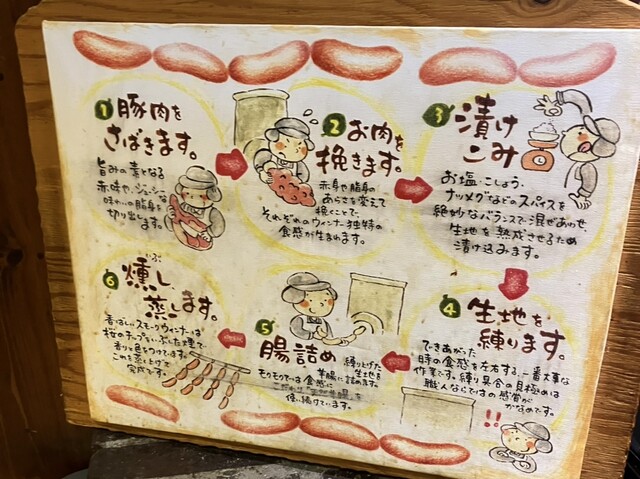 1 豚肉を
さばきます。
旨みの素となる
赤味や、ジューシーな
味わいの脂身を
切り出します。
2 お肉を
挽きます。
赤身や脂身の
あらさを変えて
挽くことで、
それぞれのウィンナー独特の
食感が生まれます。
3 漬け
こみ
お塩・こしょう・
ナツメグなどのスパイスを
絶妙なバランスで混ぜあわせ、
生地を熟成させるため
漬け込みます。
4 生地を
練ります。
できあがった
時の食感を左右する、一番大事な
作業です。練り具合の見極めは
職人ならではの感覚が
かなめです。
!!
5 腸詰め
練り上げた
生地を
羊腸に詰めます。
モリモリでいい食感に
こだわり「天然羊腸」を
使い続けています。
6 燻し
いぶ
蒸します。
香ばしいスモークウィンナーは
桜のチップをいぶした煙で
香りをつけています。
これを蒸し上げて
完成です。